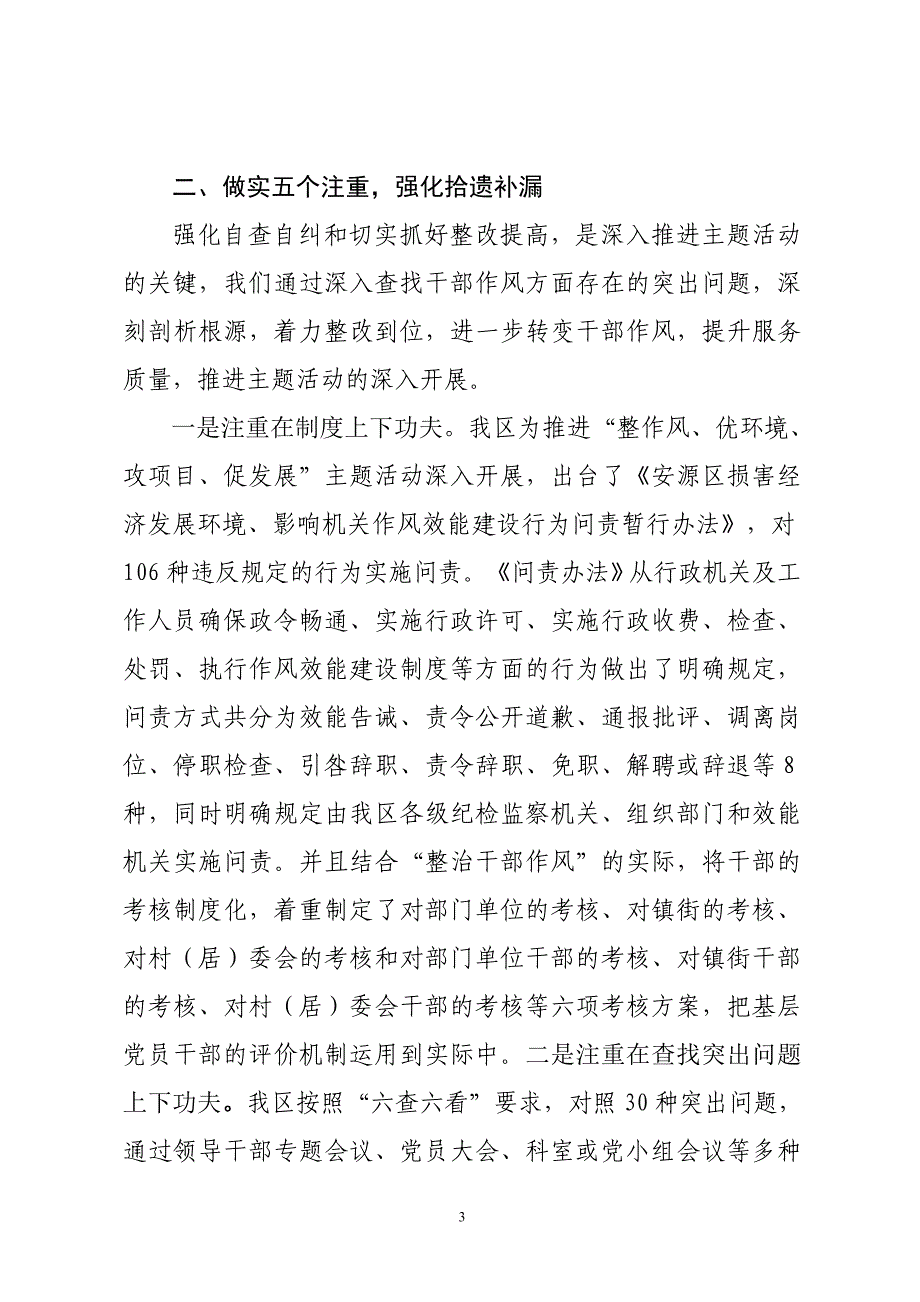 二、做实五个注重，强化拾遗补漏
强化自查自纠和切实抓好整改提高，是深入推进主题活动
的关键，我们通过深入查找干部作风方面存在的突出问题，深
刻剖析根源，着力整改到位，进一步转变干部作风，提升服务
质量，推进主题活动的深入开展。
一是注重在制度上下功夫。我区为推进“整作风、优环境、
攻项目、促发展”主题活动深入开展，出台了《安源区损害经
济发展环境、影响机关作风效能建设行为问责暂行办法》，对
106 种违反规定的行为实施问责。《问责办法》从行政机关及工
作人员确保政令畅通、实施行政许可、实施行政收费、检查、
处罚、执行作风效能建设制度等方面的行为做出了明确规定，
问责方式共分为效能告诫、责令公开道歉、通报批评、调离岗
位、停职检查、引咎辞职、责令辞职、免职、解聘或辞退等 8
种，同时明确规定由我区各级纪检监察机关、组织部门和效能
机关实施问责。并且结合“整治干部作风”的实际，将干部的
考核制度化，着重制定了对部门单位的考核、对镇街的考核、
对村（居）委会的考核和对部门单位干部的考核、对镇街干部
的考核、对村（居）委会干部的考核等六项考核方案，把基层
党员干部的评价机制运用到实际中。二是注重在查找突出问题
上下功夫。我区按照“六查六看”要求，对照 30 种突出问题，
通过领导干部专题会议、党员大会、科室或党小组会议等多种
3